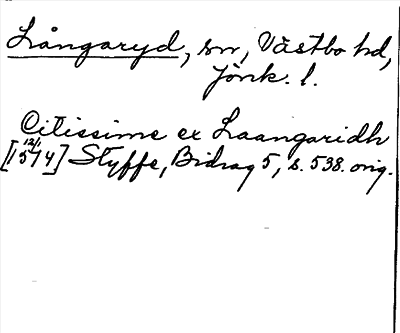 Långaryd, sn, Västbo hd,
Jönk. l.
Citissime ex Laangaridh
12/1
[1514] Styffe, Bidrag 5, s. 538. orig.